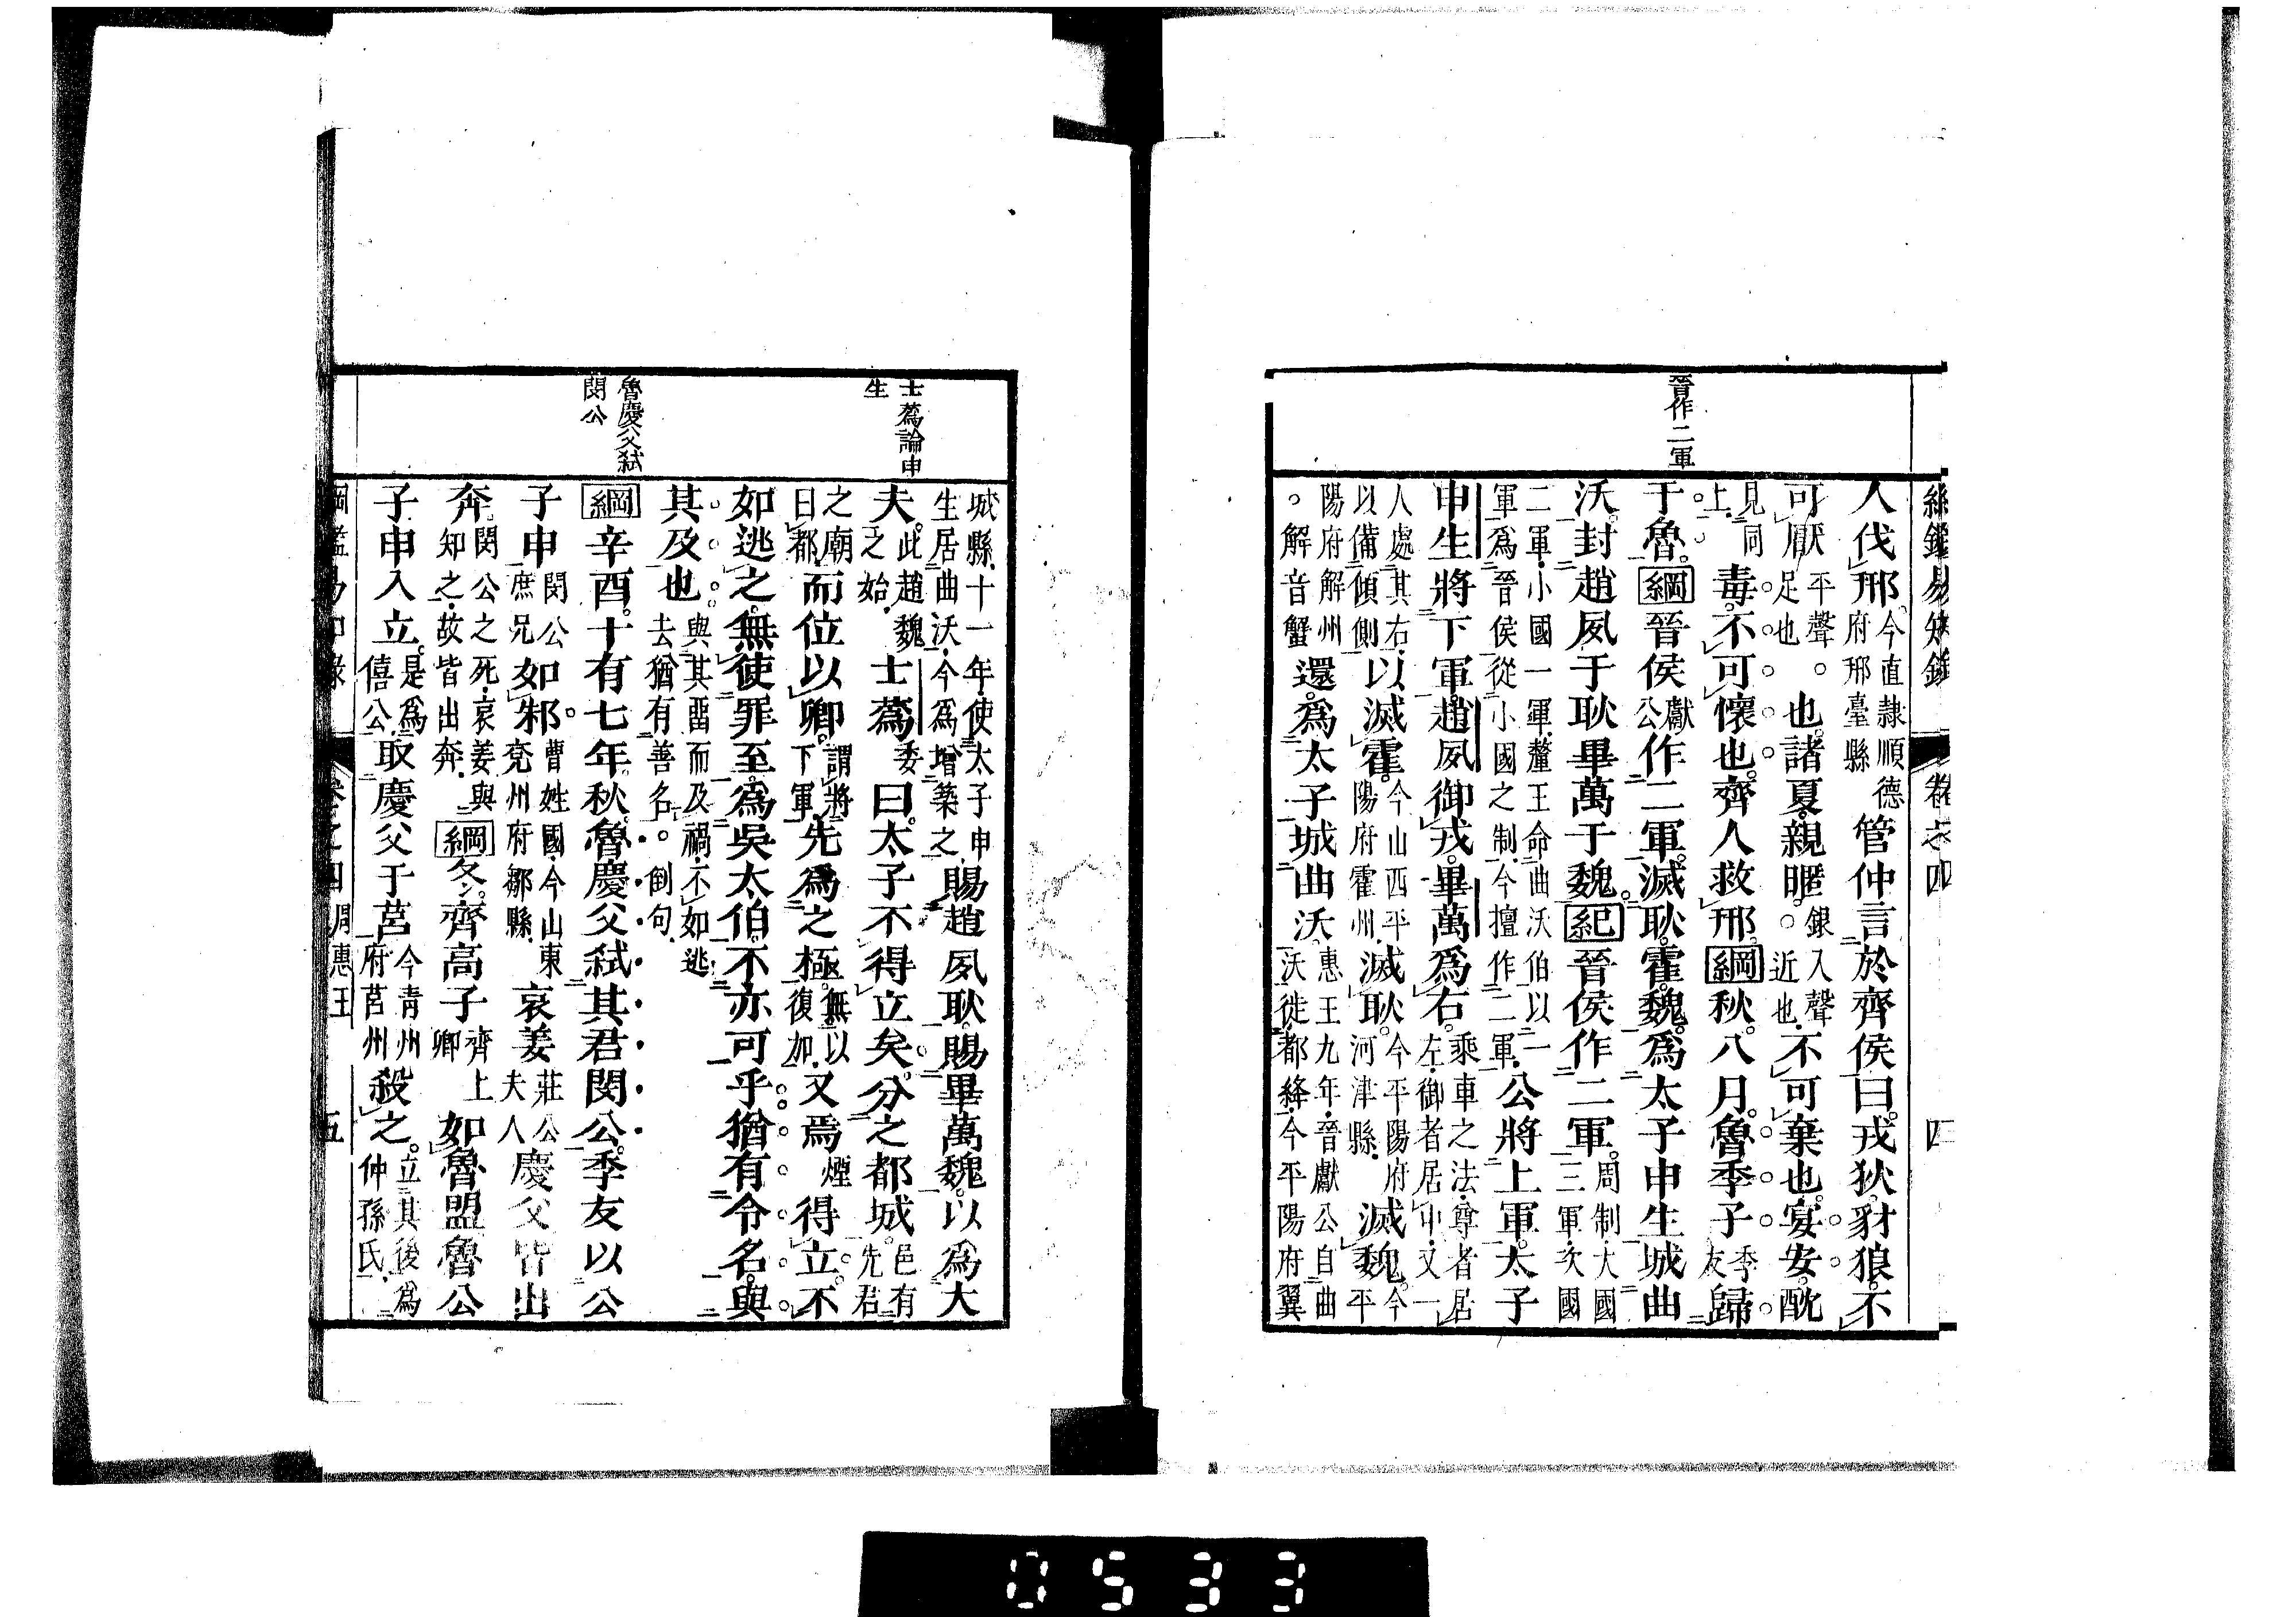 綱鑑易知錄 卷之四 四
晉作二軍
人伐邢今直隸順德府邢臺縣管仲言於齊侯曰戎狄豺狼不
可厭平聲。足也也諸夏親暱銀入聲近也不可棄也宴安酖
見同上毒不可懷也齊人救邢綱秋八月魯季子季友歸
于魯綱晉侯獻公作二軍滅耿霍魏爲太子申生城曲
沃封趙夙于耿畢萬于魏紀晉侯作二軍周制大國三軍次國
二軍小國一軍釐王命曲沃伯以一軍爲晉侯從小國之制今擅作二軍公將上軍太子
申生將下軍趙夙御戎畢萬爲右乘車之法尊者居左御者居中又一
人處其右以備傾側以滅霍今山西平陽府霍州滅耿今平陽府河津縣滅魏今平
陽府解州。解音蟹還爲太子城曲沃惠王九年晉獻公自曲沃徙都絳今平陽府翼
士蔿論申生
魯慶父弑閔公
城縣十一年使太子申生居曲沃今爲增築之賜趙夙耿賜畢萬魏以爲大
夫此趙魏之始士蔿委曰太子不得立矣分之都城邑有先君
之廟曰都而位以卿謂將下軍先爲之極無以復加又焉煙得立不
如逃之無使罪至爲吳太伯不亦可乎猶有令名與
其及也與其畱而及禍不如逃去猶有善名。倒句
綱辛酉十有七年秋魯慶父弑其君閔公季友以公
子申閔公庶兄如邾曹姓國今山東兗州府鄒縣哀姜莊公夫人慶父皆出
奔閔公之死哀姜與知之故皆出奔綱冬齊高子齊上卿如魯盟魯公
子申入立是爲僖公取慶父于莒今青州府莒州殺之立其後爲仲孫氏
綱鑑易知錄 卷之四 周惠王 五
0533